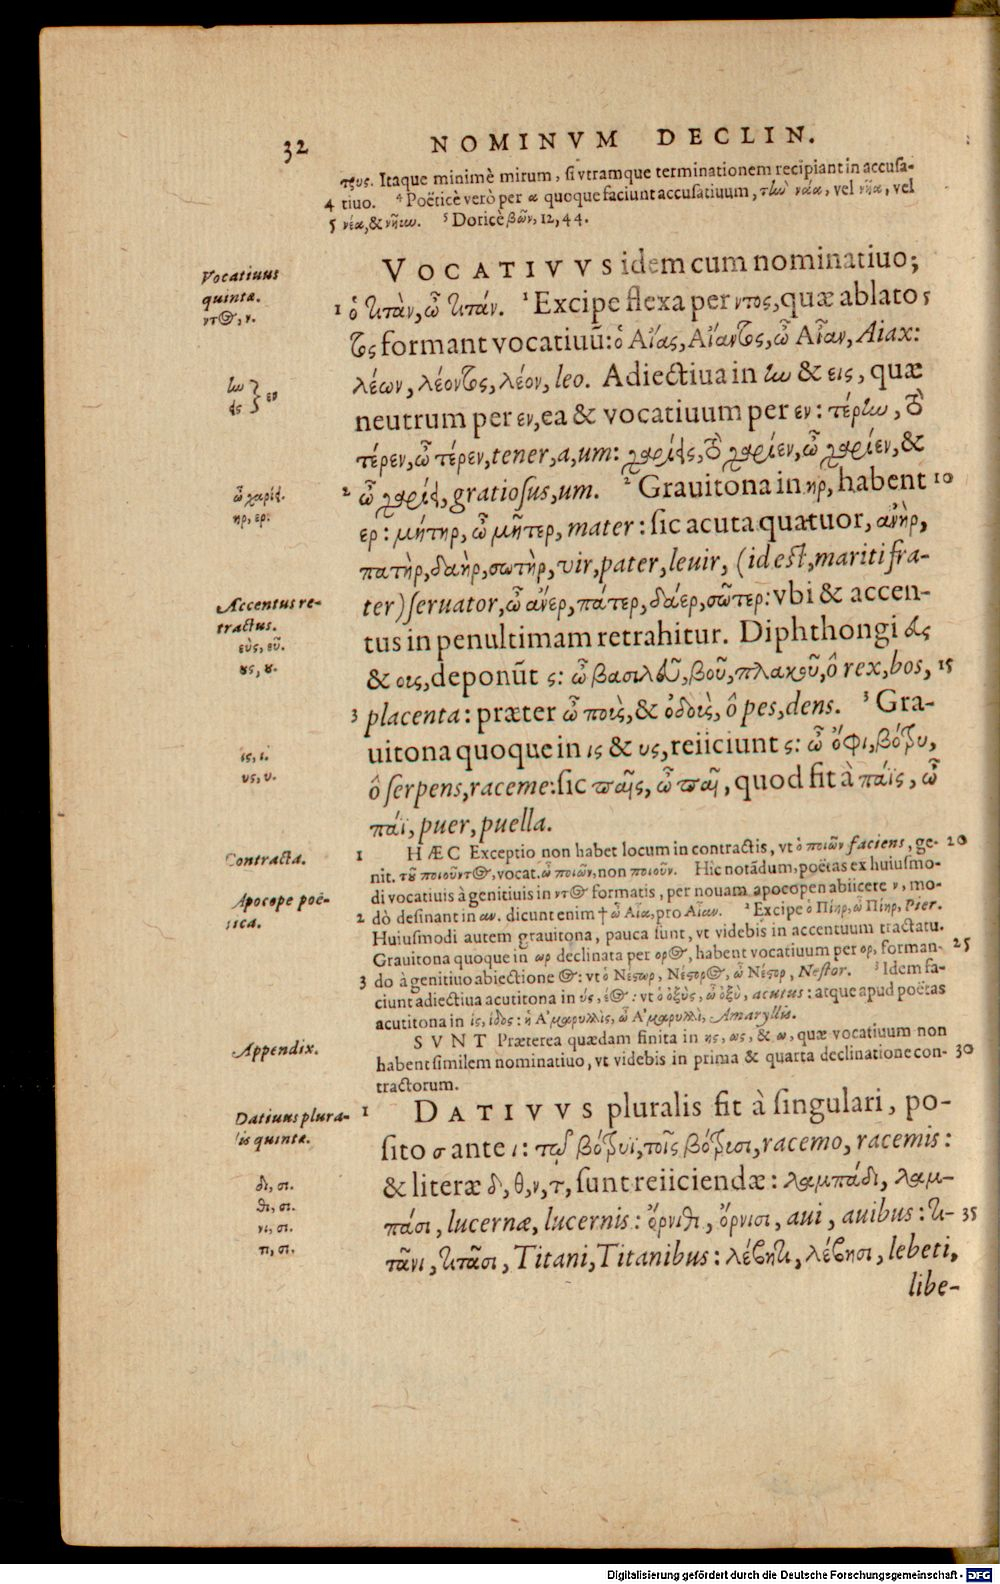 32 NOMINVM DECLIN.
τρυς. Itaque minimè mirum, si vtramque terminationem recipiant in accusa-
4 tiuo. ⁴ Poëticè verò per α quoque faciunt accusatiuum, τὴν νάα, vel νῆα, vel
5 νέα, & νῆυν. ⁵ Doricè βῶν, 12, 44.
Vocatiuus
quintæ.
ντος, ν.
VOCATIVVS idem cum nominatiuo;
1 ὁ τιτὰν, ὦ τιτάν. ¹ Excipe flexa per ντος, quæ ablato 5
τος formant vocatiuū: ὁ Αἴας, Αἴαντος, ὦ Αἶαν, Aiax:
λέων, λέοντος, λέον, leo. Adiectiua in ην & εις, quæ
ην
εις } εν
neutrum per εν, ea & vocatiuum per εν: τέρην, τὸ
τέρεν, ὦ τέρεν, tener, a, um: χαρίεις, τὸ χαρίεν, ὦ χαρίεν, &
ὦ χαρίει.
ηρ, ερ.
2 ὦ χαρίει, gratiosus, um. ² Grauitona in ηρ, habent 10
ερ: μήτηρ, ὦ μῆτερ, mater: sic acuta quatuor, ἀνὴρ,
πατὴρ, δαὴρ, σωτὴρ, vir, pater, leuir, (id est, mariti fra-
Accentus re-
tractus.
ter) seruator, ὦ ἄνερ, πάτερ, δάερ, σῶτερ: vbi & accen-
εὺς, εῦ.
ους, ου.
tus in penultimam retrahitur. Diphthongi υς
& οις, deponūt ς: ὦ βασιλεῦ, βοῦ, πλακοῦ, ô rex, bos, 15
3 placenta: præter ὦ ποὺς, & ὀδοὺς, ô pes, dens. ³ Gra-
ις, ι.
υς, υ.
uitona quoque in ις & υς, reiiciunt ς: ὦ ὄφι, βότρυ,
ô serpens, raceme: sic παῖς, ὦ παῖ, quod fit à πάϊς, ὦ
πάϊ, puer, puella.
Contracta.
1 HÆC Exceptio non habet locum in contractis, vt ὁ ποιῶν faciens, ge- 20
nit. τοῦ ποιοῦντος, vocat. ὦ ποιῶν, non ποιοῦν. Hic notādum, poëtas ex huiusmo-
Apocope poë-
tica.
di vocatiuis à genitiuis in ντος formatis, per nouam apocopen abiicere ν, mo-
2 dò desinant in αν. dicunt enim † ὦ Αἶα, pro Αἶαν. ² Excipe ὁ Πίηρ, ὦ Πίηρ, Pier.
Huiusmodi autem grauitona, pauca sunt, vt videbis in accentuum tractatu.
Grauitona quoque in ωρ declinata per ορος, habent vocatiuum per ορ, forman- 25
3 do à genitiuo abiectione ος: vt ὁ Νέστωρ, Νέστορος, ὦ Νέστορ, Nestor. ³ Idem fa-
ciunt adiectiua acutitona in ύς, έος: vt ὁ ὀξὺς, ὦ ὀξὺ, acutus: atque apud poëtas
acutitona in ίς, ίδος: ἡ Ἀμαρυλλὶς, ὦ Ἀμαρυλλὶ, Amaryllis.
Appendix.
SVNT Præterea quædam finita in ης, ως, & ω, quæ vocatiuum non
habent similem nominatiuo, vt videbis in prima & quarta declinatione con- 30
tractorum.
Datiuus plura-
lis quintæ.
1 DATIVVS pluralis fit à singulari, po-
sito σ ante ι: τῷ βότρυϊ, τοῖς βότρυσι, racemo, racemis:
δι, σι.
θι, σι.
νι, σι.
τι, σι.
& literæ δ, θ, ν, τ, sunt reiiciendæ: λαμπάδι, λαμ-
πάσι, lucernæ, lucernis: ὄρνιθι, ὄρνισι, aui, auibus: τι- 35
τᾶνι, τιτᾶσι, Titani, Titanibus: λέβητι, λέβησι, lebeti,
libe-
Digitalisierung gefördert durch die Deutsche Forschungsgemeinschaft - DFG